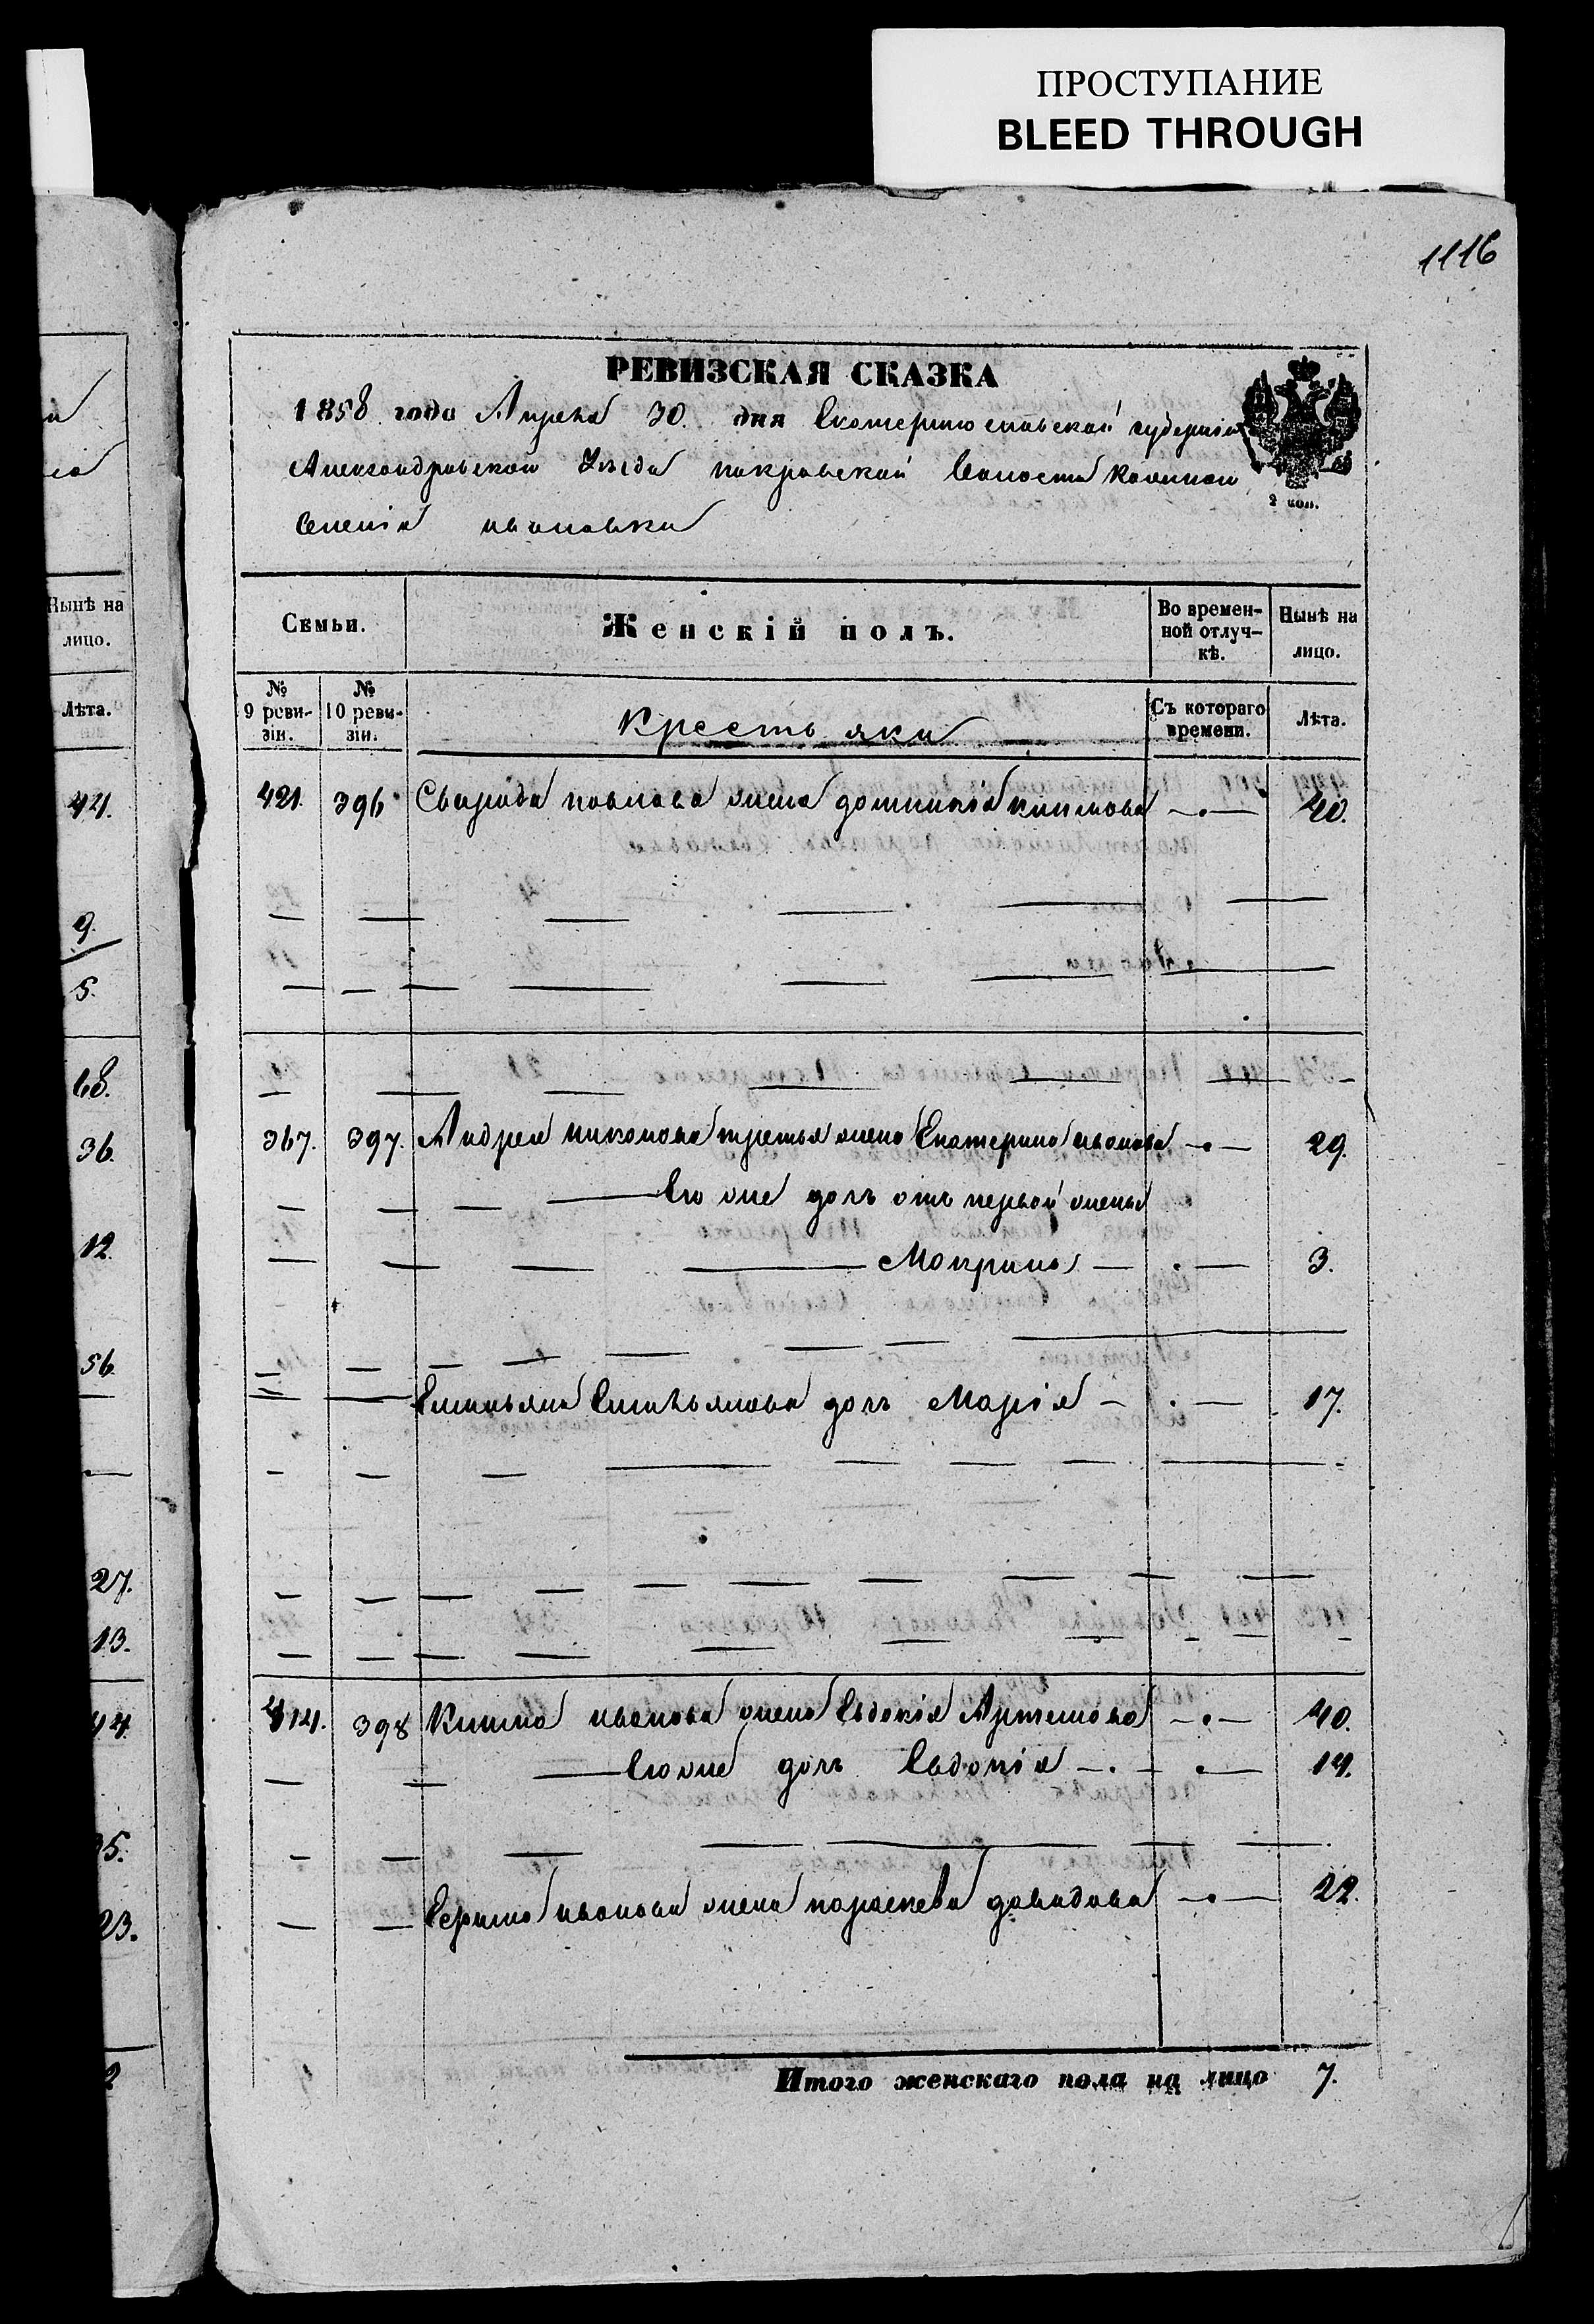 ПРОСТУПАНИЕ
BLEED THROUGH
1116
РЕВИЗСКАЯ СКАЗКА
1858 года Апреля 30. дня Екатеринославской губернии
Александровского Уезда покровской Волости казенного
Селения ивановки
2 коп.
Семьи. Женскій полъ. Во времен- Нынѣ на
ной отлуч- лицо.
кѣ.
№ 9 реви- зіи. № 10 реви- зіи. Крестьянки Съ котораго времени. Лѣта.
421. 396 Свирида павлова жена домникія климова 40.
367. 397. Андрея никонова третья жена Екатерина иванова 29.
Его же дочь отъ первой жены
Макрина 3.
Емельяна Емельянова дочь Марія 17.
414. 398 Клима иванова жена Евдокія Артемова 40.
Его же дочь Евдокія 14.
иванова жена параскева давидова 22.
Итого женскаго пола на лицо 7.
Нынѣ на
лицо.
Лѣта.
44.
9.
5.
68.
36.
12.
56.
27.
13.
44
35.
23.